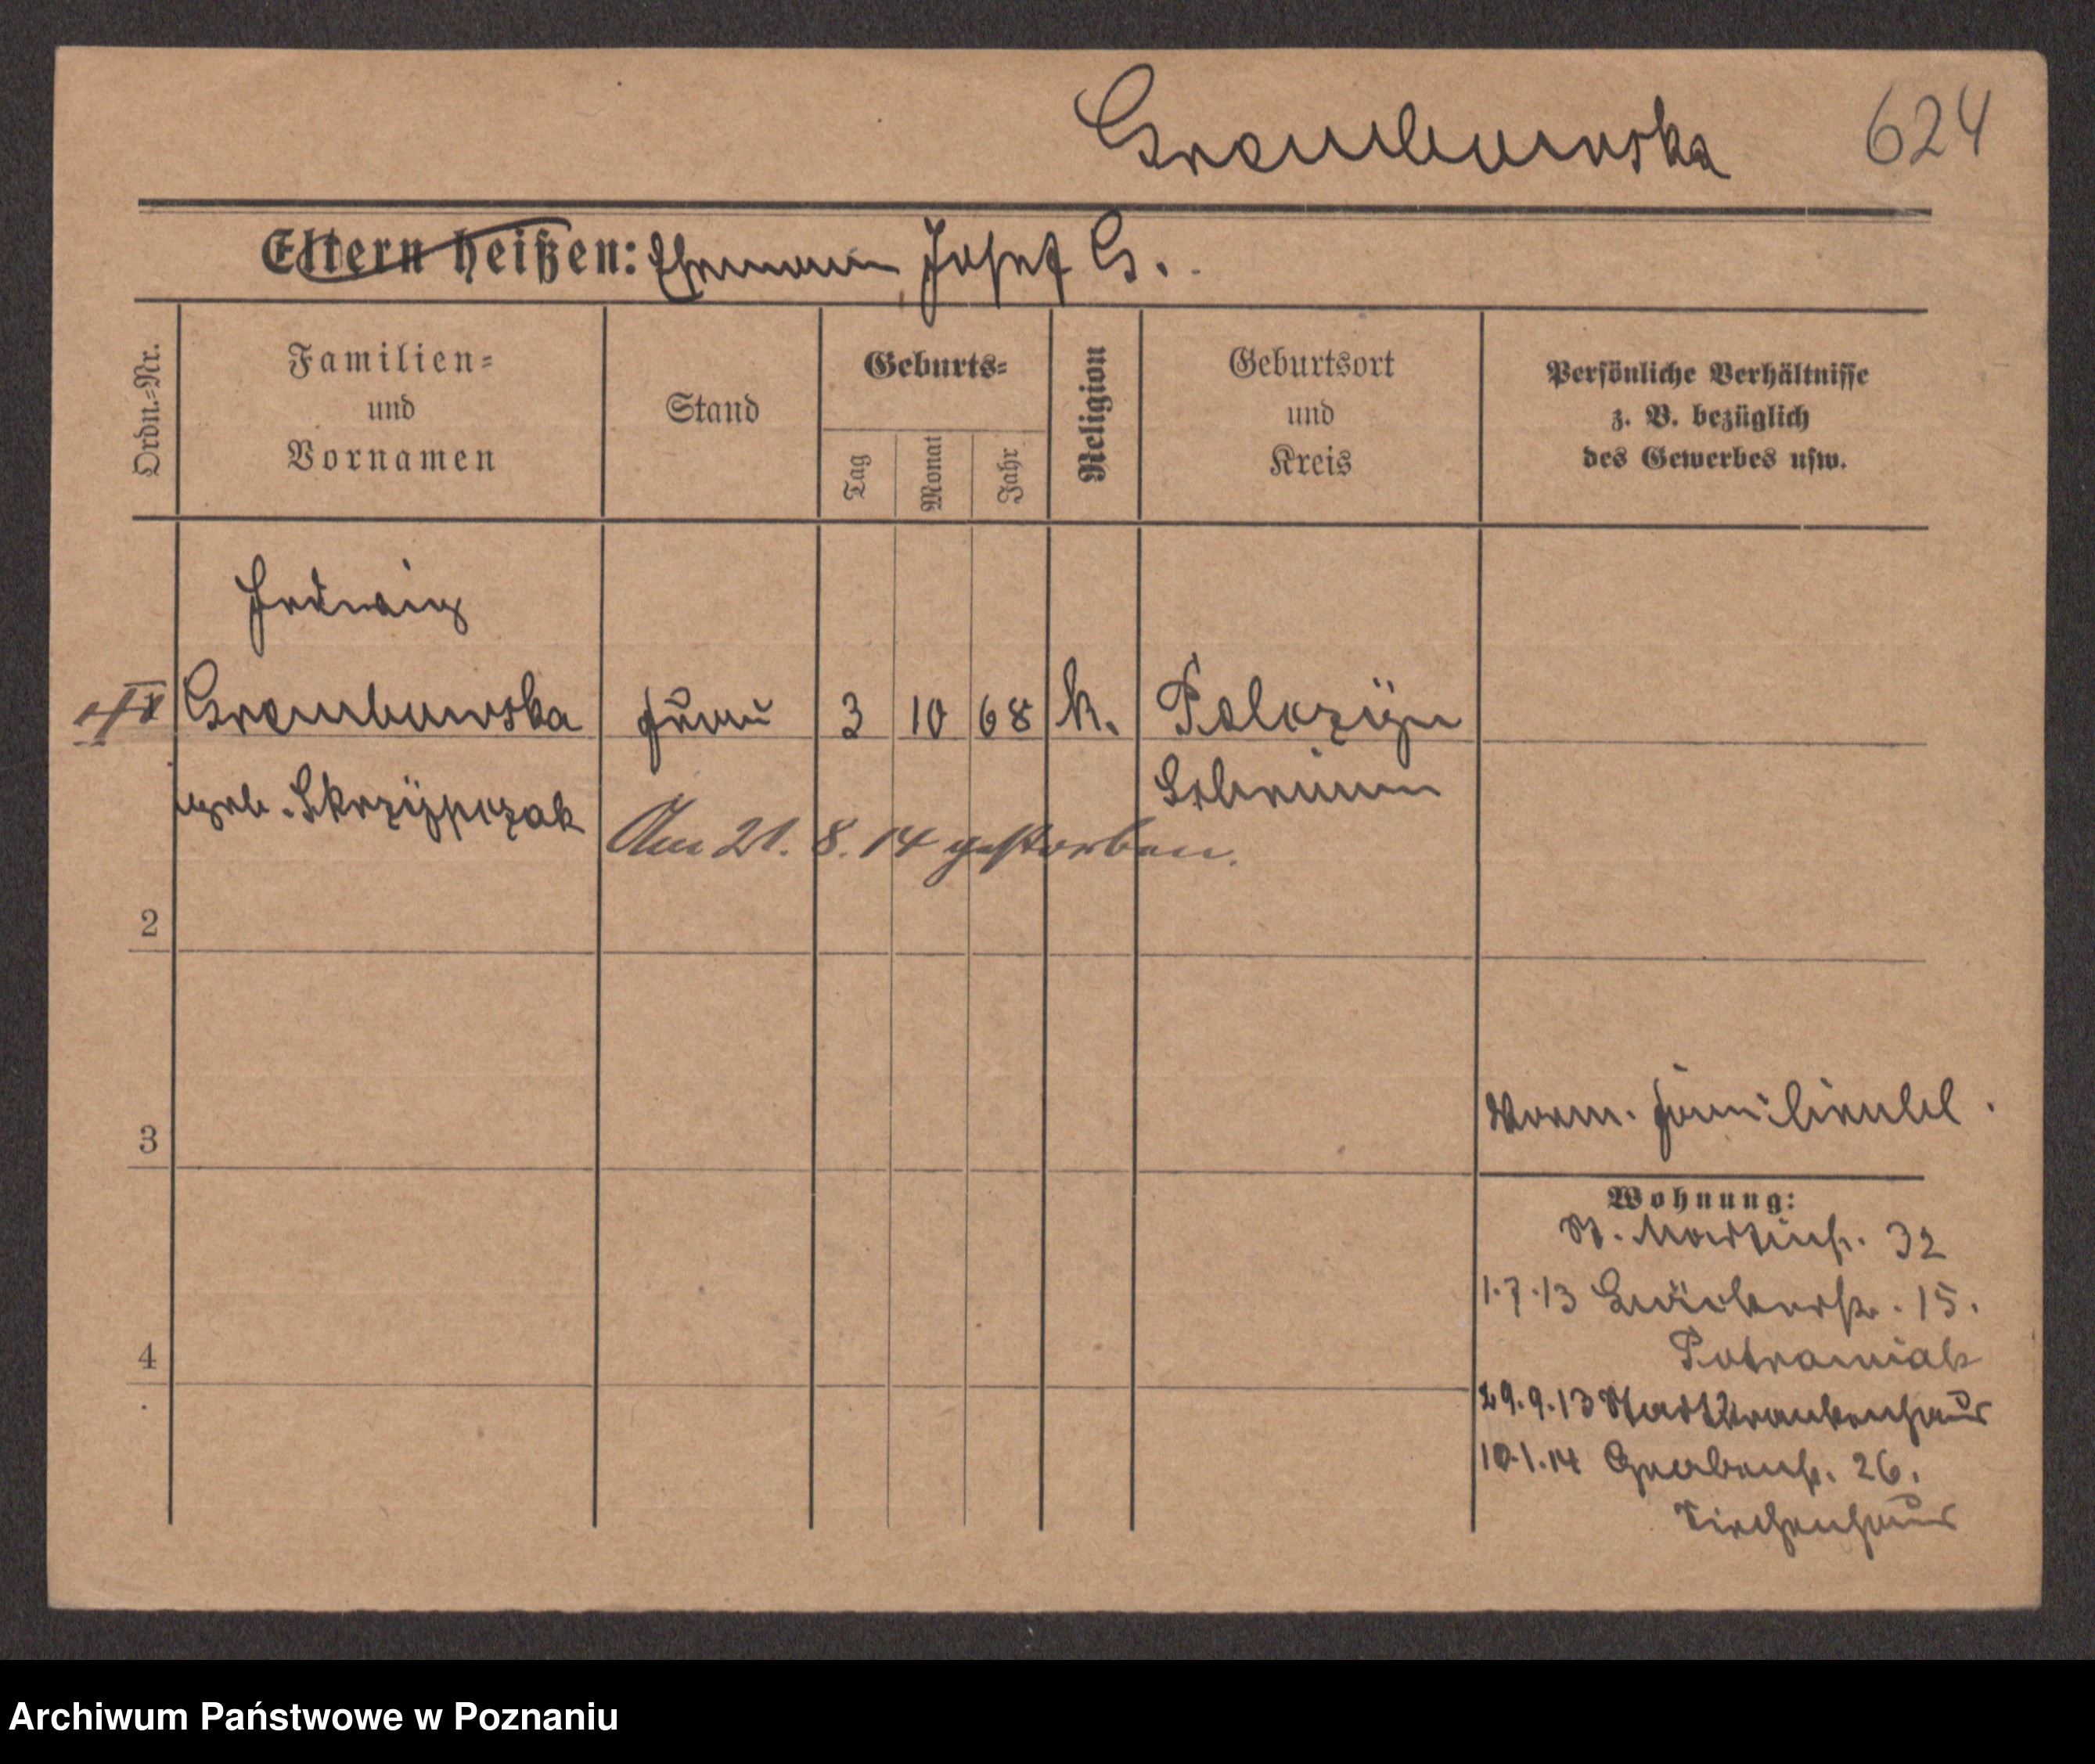 Grembowska 624
Eltern heißen: Ehemann Josef G.
Ordn.-Nr.
Familien-
und
Vornamen
Stand
Geburts-
Tag
Monat
Jahr
Religion
Geburtsort
und
Kreis
Persönliche Verhältnisse
z. B. bezüglich
des Gewerbes usw.
Hedwig
Grembowska Frau 3 10 68 k.
geb. Skrzypczak Schrimm
Am 21. 8. 14 gestorben.
2
3
Wohnung:
St. Martinstr. 32
1.7.13 15.
Potraniak
4
29.9.13 Stadtkrankenhaus
10.1.14 Grabenstr. 26.
Siechenhaus
Archiwum Państwowe w Poznaniu